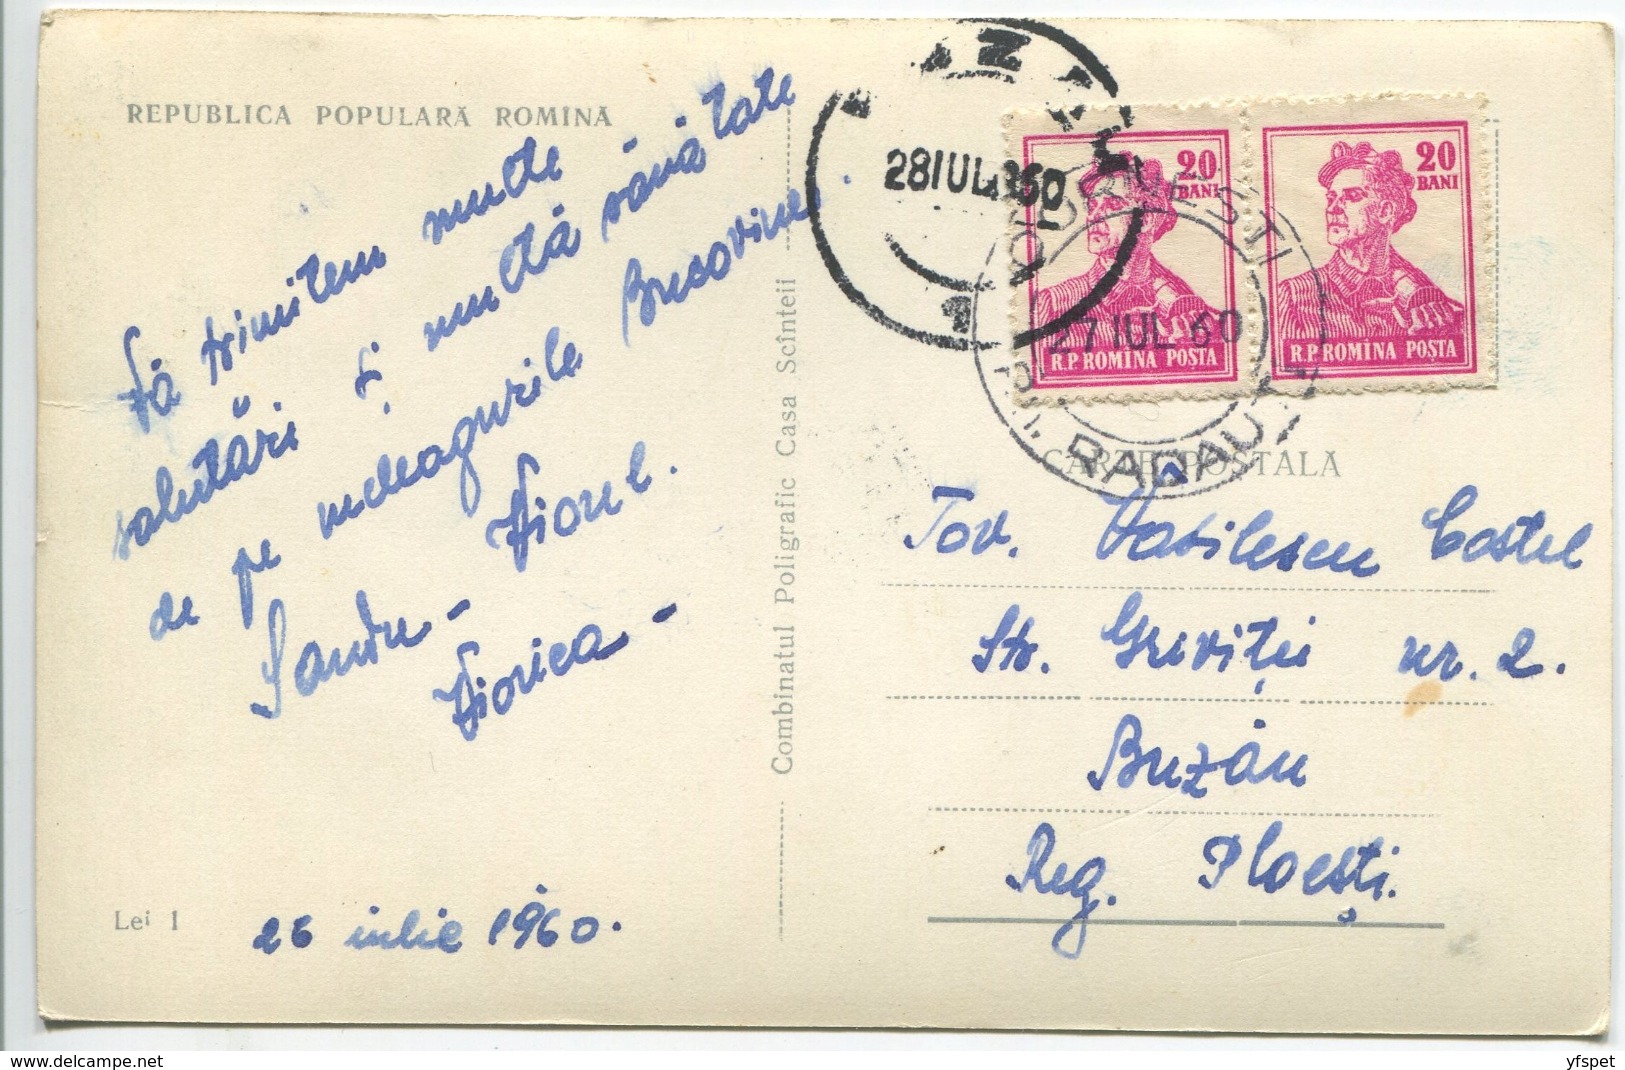 REPUBLICA POPULARĂ ROMÎNĂ
Vă trimitem multe
salutări și multă sănătate
de pe meleagurile Bucovinei.
Sandu -
Viorel.
Viorica -
Lei 1
26 iulie 1960.
Combinatul Poligrafic Casa Scînteii
28 IUL 60
20
BANI
R.P. ROMINA POSTA
20
BANI
R.P. ROMINA POSTA
27 IUL 60
RADAUTI
CARTE POȘTALĂ
Tov. Vasilescu Costel
Str. Griviței nr. 2.
Buzău
Reg. Ploești.
delcampe.net
yfspet